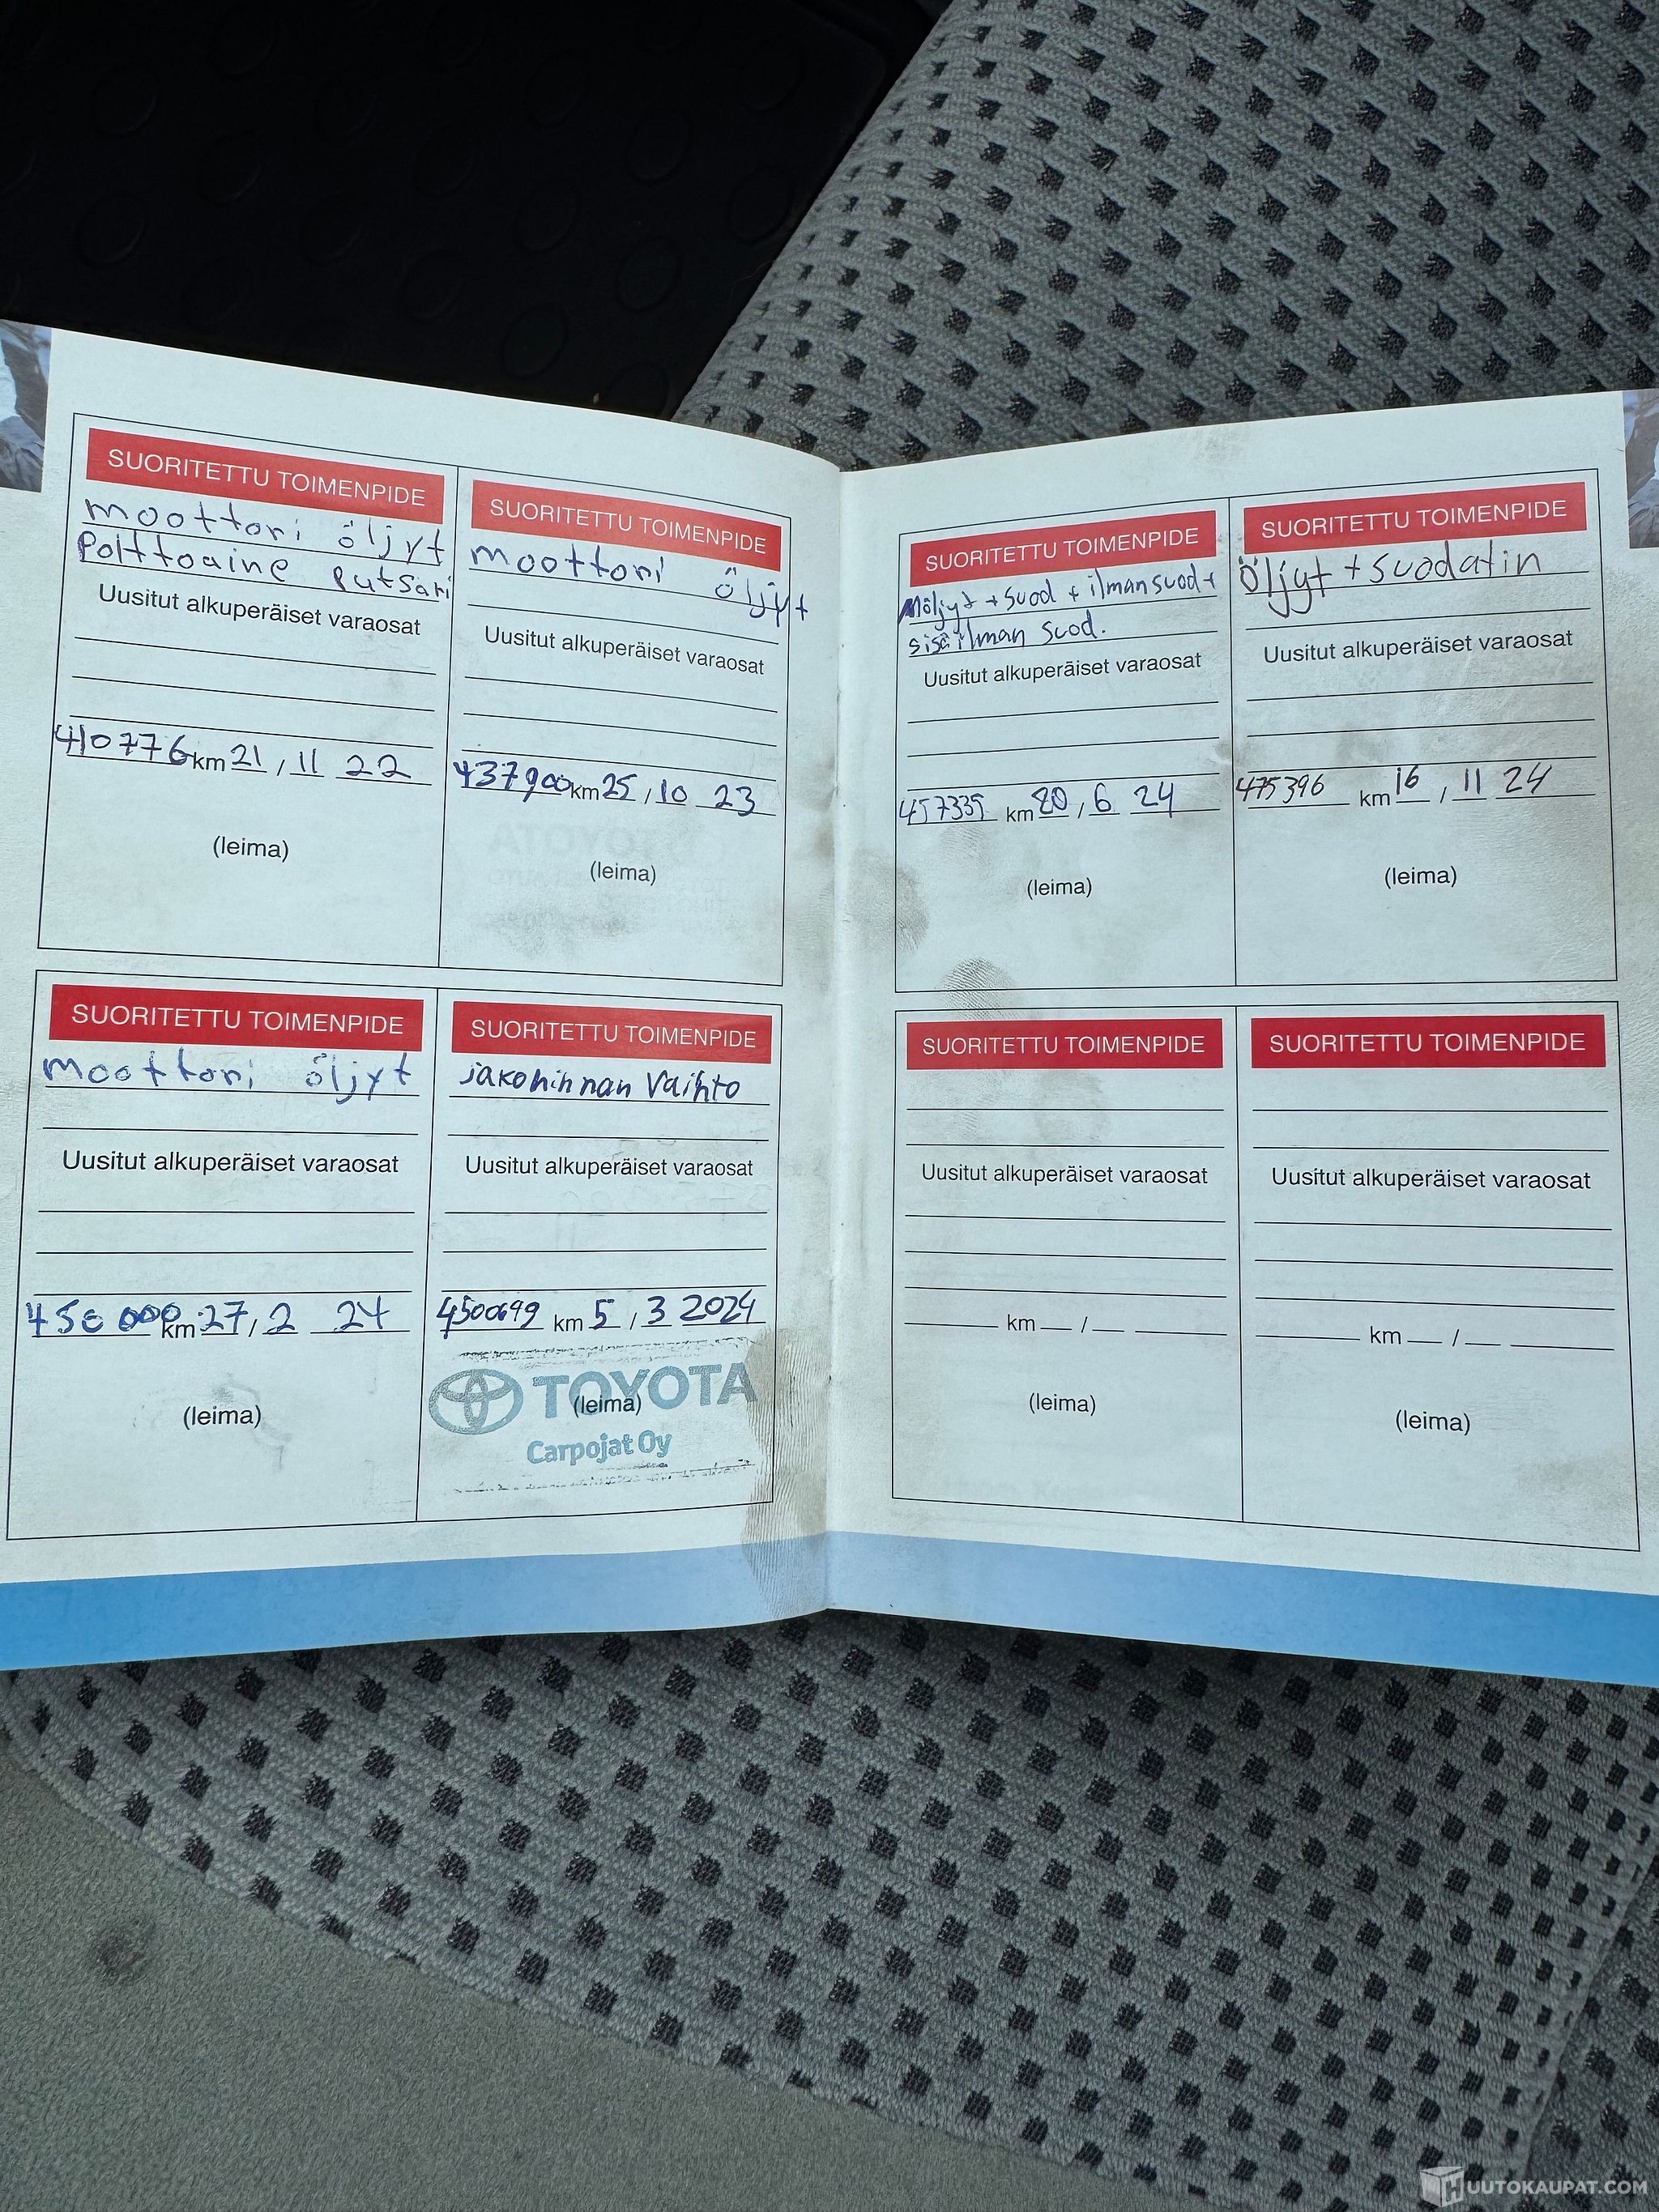 SUORITETTU TOIMENPIDE
moottori öljyt
Polttoaine putsari
Uusitut alkuperäiset varaosat
410776 km 21 / 11 22
(leima)
SUORITETTU TOIMENPIDE
moottori öljyt
Uusitut alkuperäiset varaosat
437900 km 25 / 10 23
(leima)
SUORITETTU TOIMENPIDE
moottori öljyt
Uusitut alkuperäiset varaosat
450 000 km 27 / 2 24
(leima)
SUORITETTU TOIMENPIDE
jakohihnan vaihto
Uusitut alkuperäiset varaosat
km 5 / 3 2024
TOYOTA
(leima)
Carpojat Oy
SUORITETTU TOIMENPIDE
Möljyt + suod + ilmansuod +
sisäilman suod.
Uusitut alkuperäiset varaosat
457335 km 20 / 6 24
(leima)
SUORITETTU TOIMENPIDE
Öljyt + suodatin
Uusitut alkuperäiset varaosat
475396 km 16 / 11 24
(leima)
SUORITETTU TOIMENPIDE
Uusitut alkuperäiset varaosat
km /
(leima)
SUORITETTU TOIMENPIDE
Uusitut alkuperäiset varaosat
km /
(leima)
HUUTOKAUPAT.COM